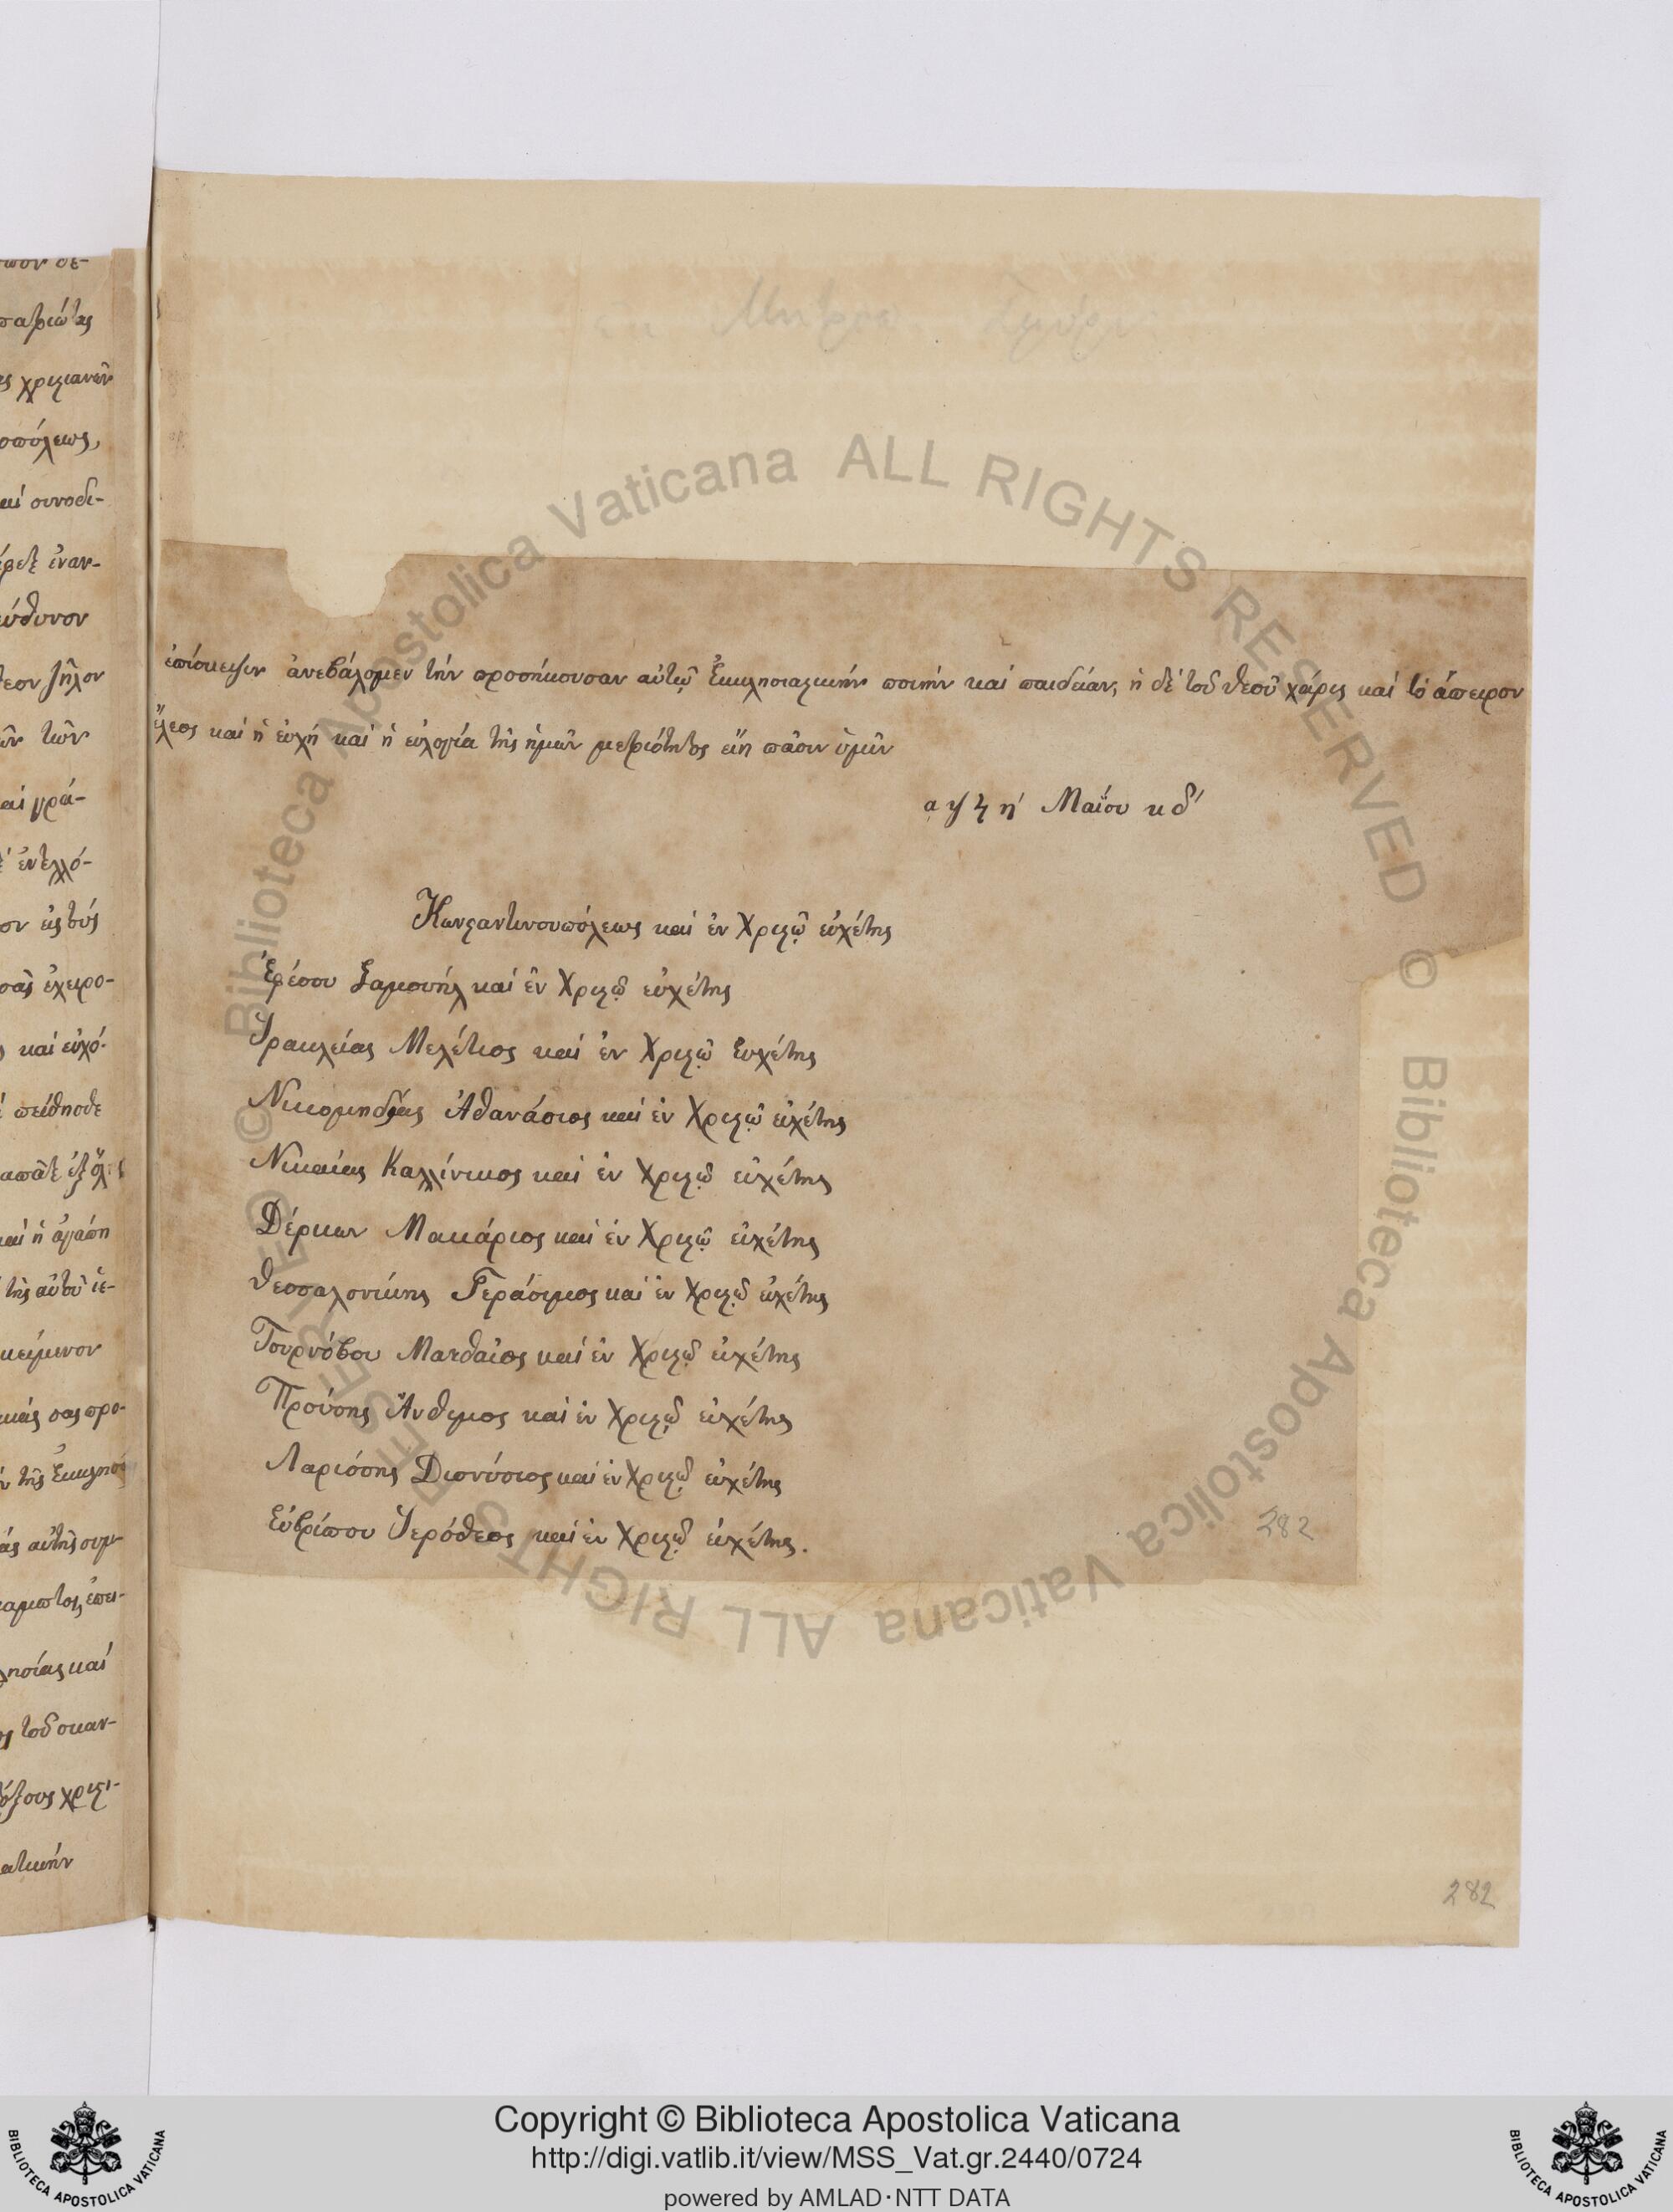 ἐπίσκεψιν ἀνεβάλομεν τὴν προσήκουσαν αὐτῷ Ἐκκλησιαστικὴν ποινὴν καὶ παιδείαν, ἡ δὲ τοῦ θεοῦ χάρις καὶ τὸ ἄπειρον
ἔλεος καὶ ἡ εὐχὴ καὶ ἡ εὐλογία τῆς ἡμῶν μετριότητος εἴη πᾶσιν ὑμῖν
͵αψϟη΄ Μαΐου κδ΄
Κωνσταντινουπόλεως καὶ ἐν Χριστῷ εὐχέτης
Ἐφέσου Σαμουὴλ καὶ ἐν Χριστῷ εὐχέτης
Ἡρακλείας Μελέτιος καὶ ἐν Χριστῷ Εὐχέτης
Νικομηδείας Ἀθανάσιος καὶ ἐν Χριστῷ εὐχέτης
Νικαίας Καλλίνικος καὶ ἐν Χριστῷ εὐχέτης
Δέρκων Μακάριος καὶ ἐν Χριστῷ εὐχέτης
Θεσσαλονίκης Γεράσιμος καὶ ἐν Χριστῷ εὐχέτης
Τουρνόβου Ματθαῖος καὶ ἐν Χριστῷ εὐχέτης
Προύσης Ἄνθιμος καὶ ἐν Χριστῷ εὐχέτης
Λαρίσσης Διονύσιος καὶ ἐν Χριστῷ εὐχέτης
Εὐβρίπου Ἱερόθεος καὶ ἐν Χριστῷ εὐχέτης.
282
282
χριστιανῶν
καὶ συνοδι-
ἐναν-
ζῆλον
τῶν
καὶ εὐχό-
πείθησθε
καὶ ἡ ἀγάπη
τῆς αὐτοῦ ἱε-
κείμενον
τῆς Ἐκκλησί
καὶ
τοῦ σκαν-
χριστι-
© Biblioteca Apostolica Vaticana ALL RIGHTS RESERVED © Biblioteca Apostolica Vaticana ALL RIGHTS RESERVED
Copyright © Biblioteca Apostolica Vaticana
http://digi.vatlib.it/view/MSS_Vat.gr.2440/0724
powered by AMLAD·NTT DATA
BIBLIOTECA APOSTOLICA VATICANA
BIBLIOTECA APOSTOLICA VATICANA